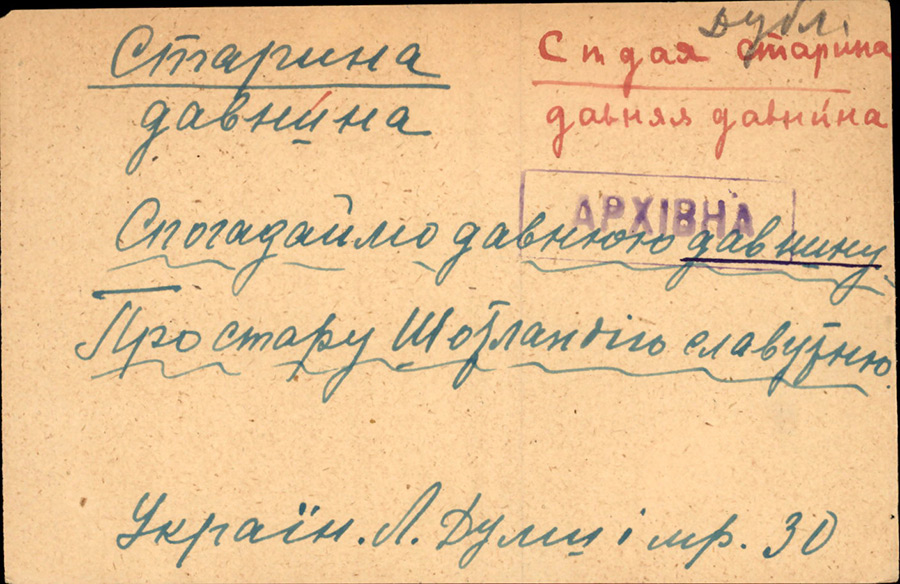 Дубл.
Старина
давни́на
Сѣдая старина
давняя давни́на
АРХІВНА
Спогадаймо давнюю давнину
Про стару Шотландію славутню
Україн. Л. Думи і мр. 30